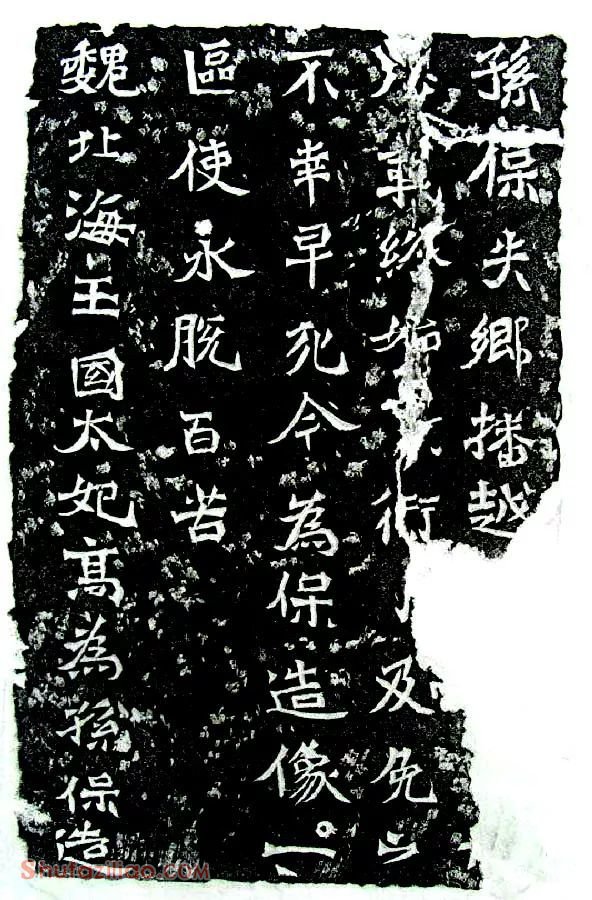 孫保失鄉播越
終始及免
不幸早死今為保造像一
區使永脱百苦
魏北海王國太妃高為孫保造
Shufaziliao.com